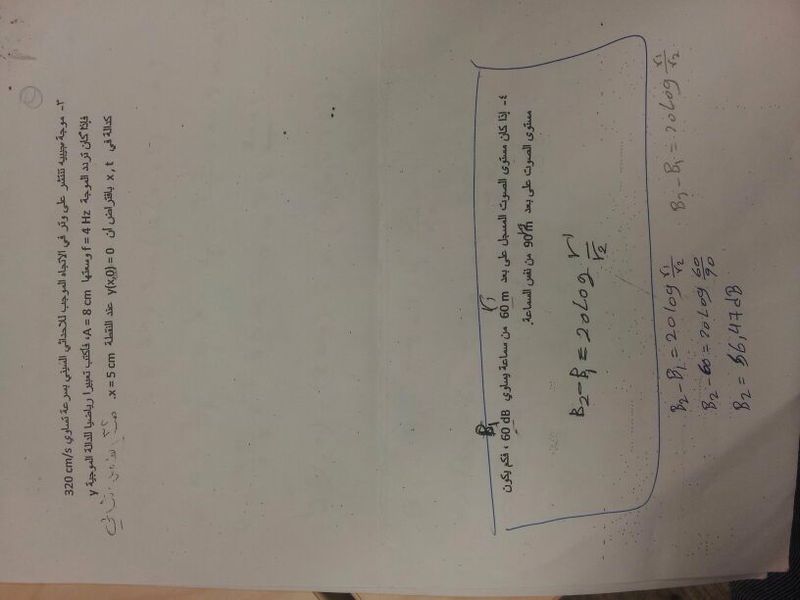 ٣- موجة جيبيه تنتشر على وتر في الاتجاه الموجب للاحداثي السيني بسرعة تساوي 320 cm/s
فإذا كان تردد الموجة f = 4 Hz وسعتها A = 8 cm، فأكتب تعبيرا رياضيا للدالة الموجية y
كدالة في x, t بافتراض أن y(x,0) = 0 عند النقطة x = 5 cm.
٤- إذا كان مستوى الصوت المسجل على بعد 60 m من سماعة يساوي 60 dB ، فكم يكون
r₁
B₁
مستوى الصوت على بعد 90 m من نفس السماعة.
B₂-B₁ = 20 Log r₁/r₂
B₂-B₁ = 20 Log r₁/r₂
B₂-B₁ = 20 Log r₁/r₂
B₂-60 = 20 Log 60/90
B₂ = 56,47 dB